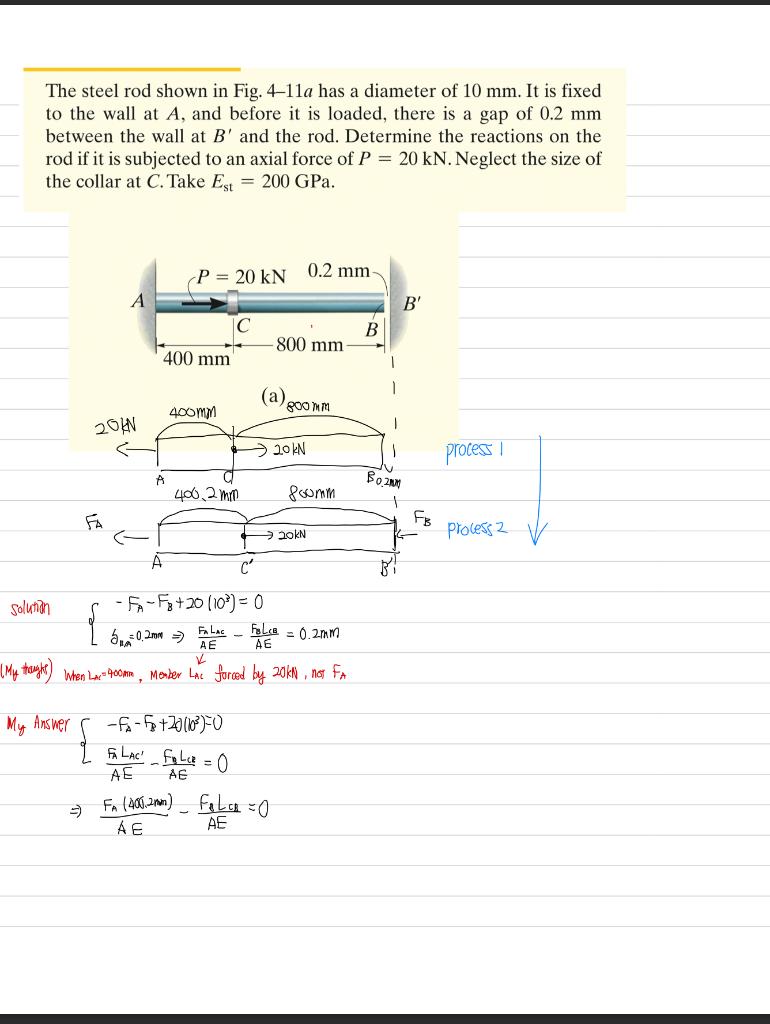 The steel rod shown in Fig. 4–11a has a diameter of 10 mm. It is fixed
to the wall at A, and before it is loaded, there is a gap of 0.2 mm
between the wall at B′ and the rod. Determine the reactions on the
rod if it is subjected to an axial force of P = 20 kN. Neglect the size of
the collar at C. Take E_st = 200 GPa.
P = 20 kN 0.2 mm
A B′
C B
800 mm
400 mm
(a)
400mm 800mm
20kN
→ 20kN process 1
A C B 0.2mm
400.2mm 800mm
F_A F_B
→ 20kN process 2
A C' B'
solution
-F_A-F_B+20(10³)=0
=0.2mm ⇒ F_A L_AC/AE - F_B L_CB/AE = 0.2mm
(My thought) When L_AC=400mm, Member L_AC forced by 20kN, not F_A
My Answer
-F_A-F_B+20(10³)=0
F_A L_AC'/AE - F_B L_CB/AE = 0
⇒ F_A (400.2mm)/AE - F_B L_CB/AE = 0